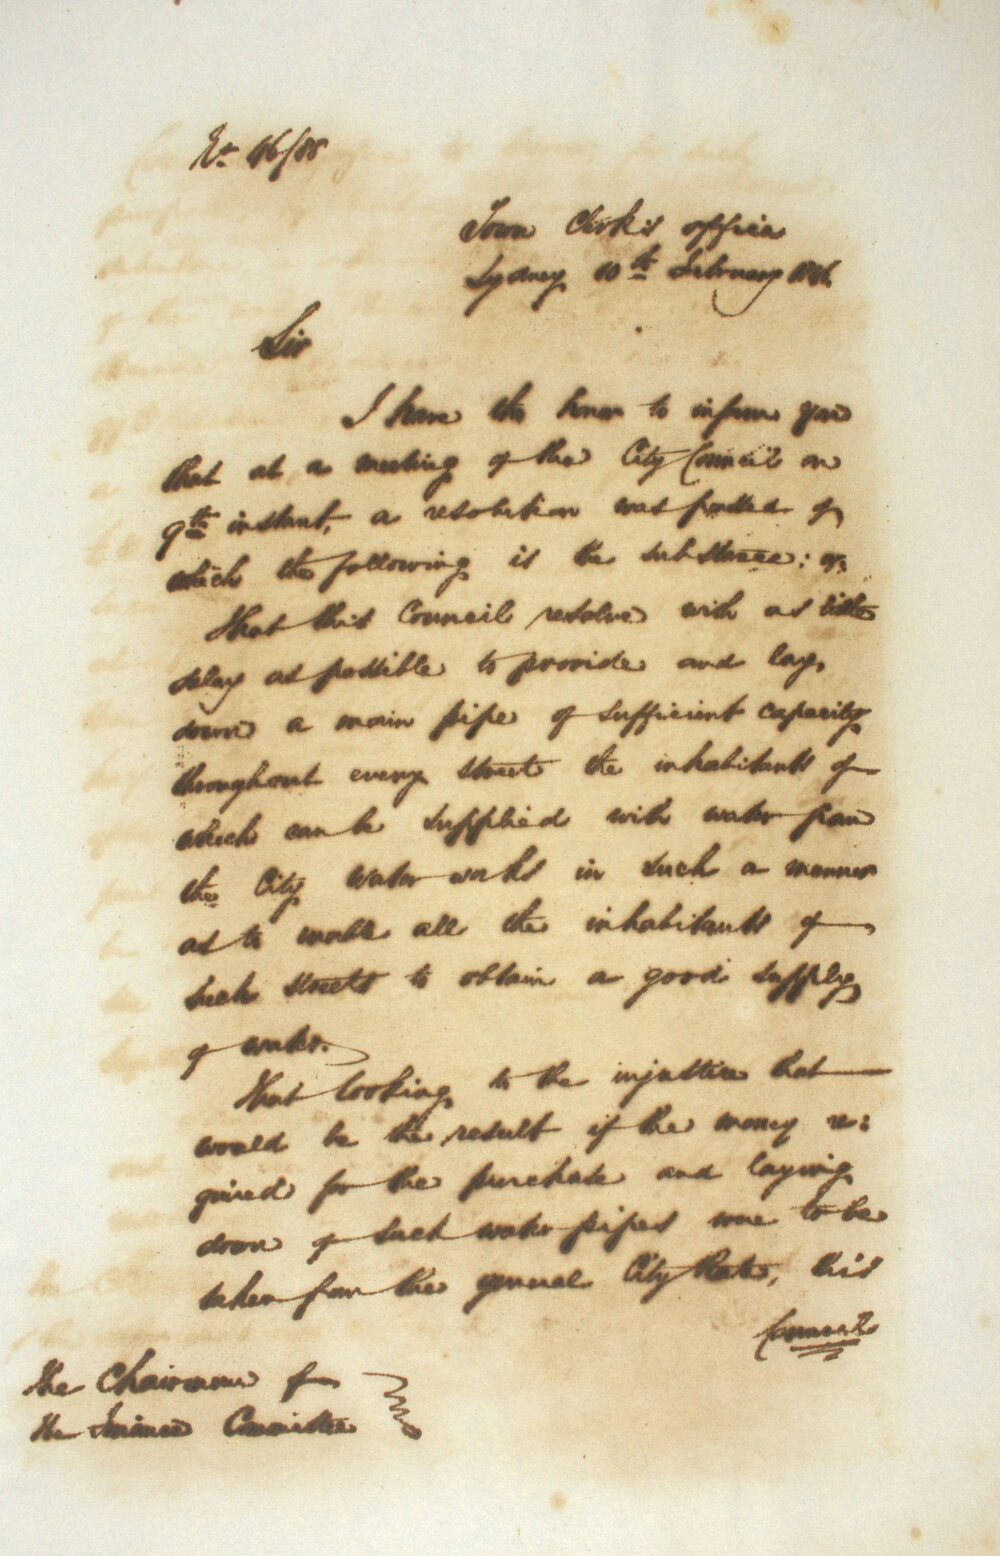 46/88
Town Clerk's office
Sydney 10th February 1846
Sir
I have the honor to inform you
that at a meeting of the City Council on
9th instant, a resolution was passed of
which the following is the substance:
That this Council resolve with as little
delay as possible to provide and lay
down a main pipe of sufficient capacity
throughout every street the inhabitants of
which can be supplied with water from
the City Water works in such a manner
as to enable all the inhabitants of
such streets to obtain a good supply
of water.
That looking to the injustice that
would be the result if the money re:
quired for the purchase and laying
down of such water pipes were to be
taken from the general City Rate, this
Council
The Chairman for
the Finance Committee